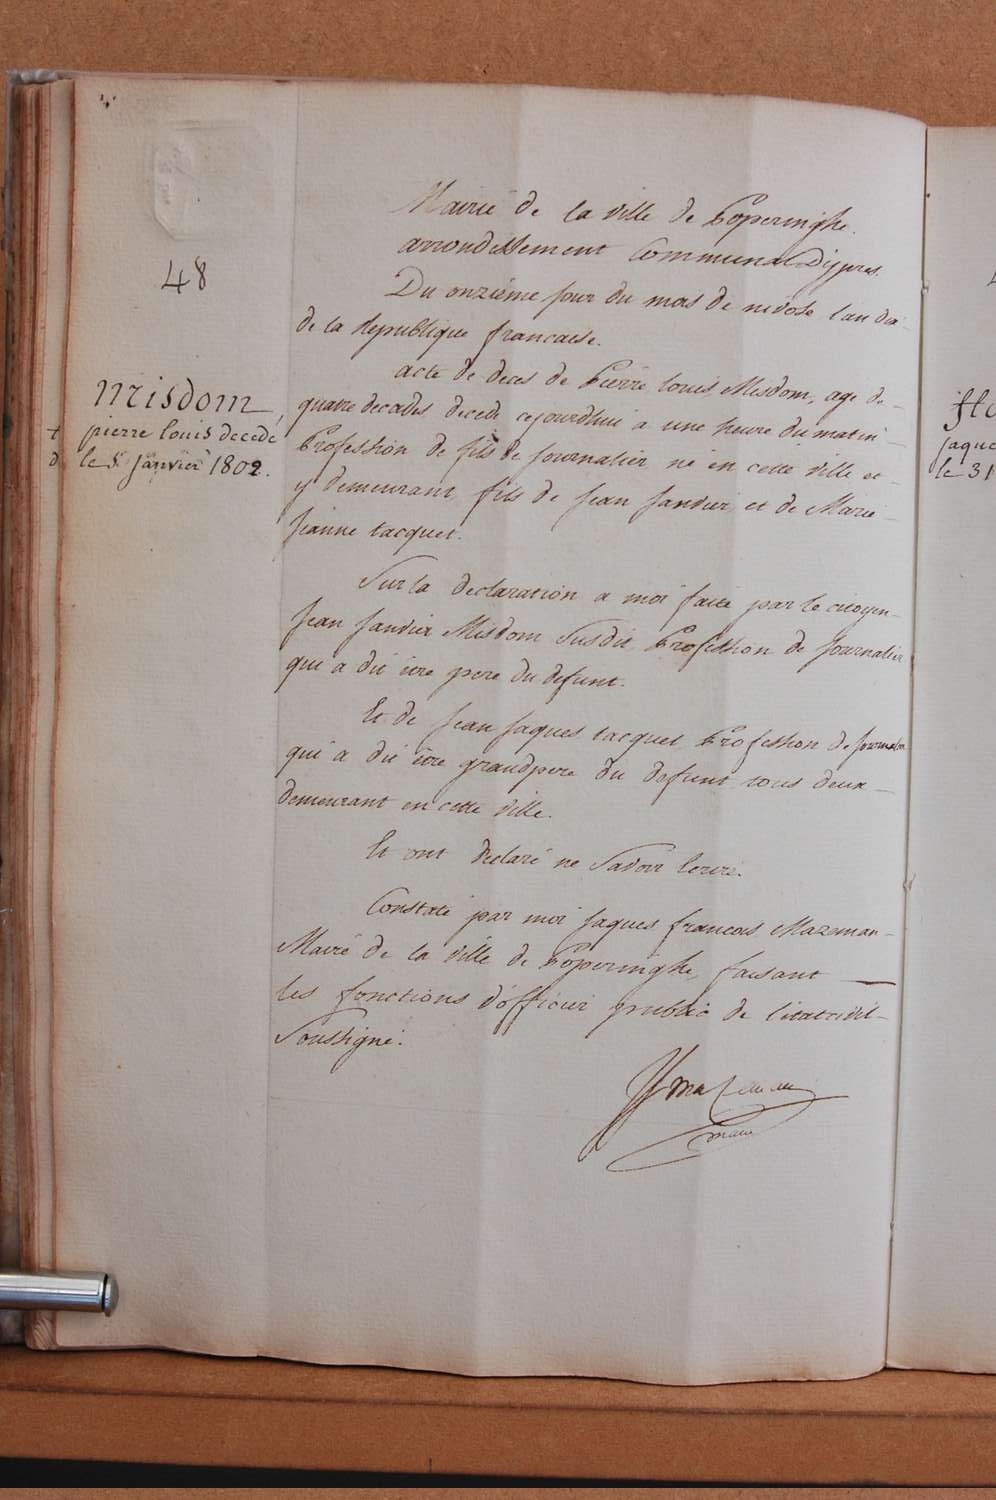 48
Misdom,
pierre louis decede
le 1r janvier 1802.
Mairie de la ville de Poperinghe.
arrondissement Communal Dijpres.
Du onzieme jour du mois de nivose l'an dix
de la Republique francaise.
acte de deces de Pierre louis Misdom, age de
quatre decades decede cejourdhui a une heure du matin
Profession de fils de journalier né en cette ville et
y demeurant, fils de jean Xandier, et de Marie
jeanne tacquet.
Sur la declaration a moi faite par le citoyen
jean Xavier Misdom Susdit, Profession de journalier
qui a dit être pere du defunt.
Et de jean jaques tacquet Profession de journalier
qui a dit être grandpere du defunt tous deux
demeurant en cette ville.
Et ont declaré ne Savoir Ecrire.
Constaté par moi jaques francois Mazeman
Maire de la ville de Poperinghe, faisant
les fonctions d'officier public de l'etat civil
Soussigné.
maire
jaque
le 31